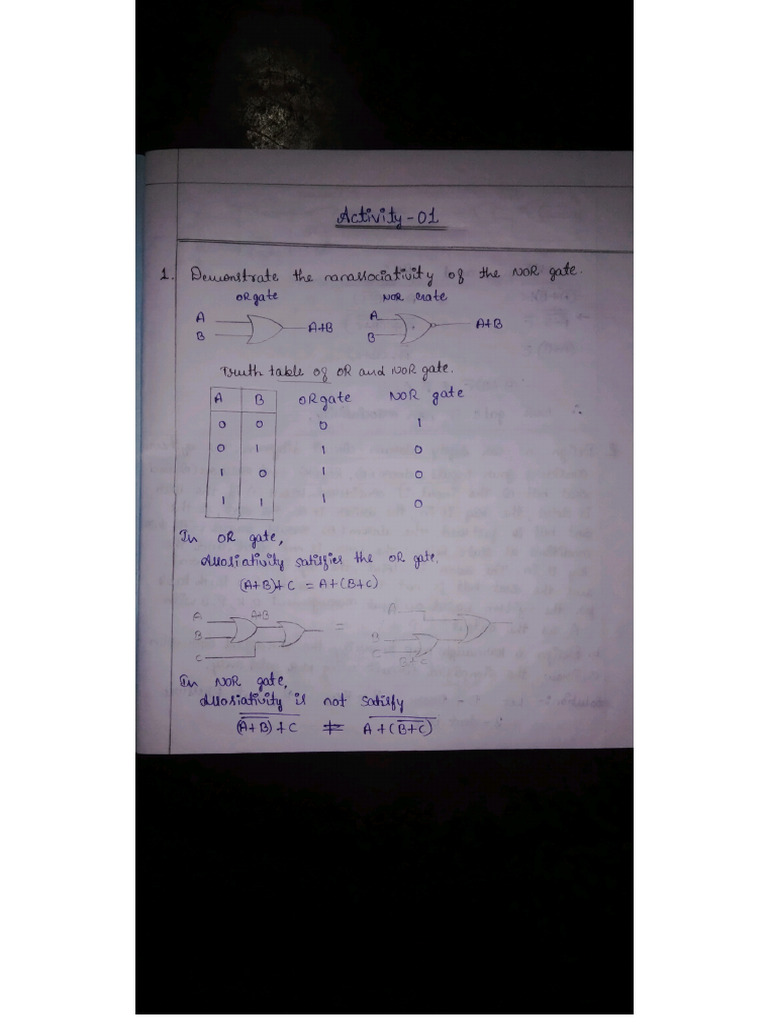 Activity-01
1. Demonstrate the nonassociativity of the NOR gate.
OR gate NOR Gate
A
B
A+B
A
B
A+B
Truth table of OR and NOR gate.
A B OR gate NOR gate
0 0 0 1
0 1 1 0
1 0 1 0
1 1 1 0
In OR gate,
Assosiativity satisfies the OR gate.
(A+B)+C = A+(B+C)
A A+B
B
C
=
A
B
C
B+C
In NOR gate,
Assosiativity is not satisfy
(A+B)+C ≠ A+(B+C)